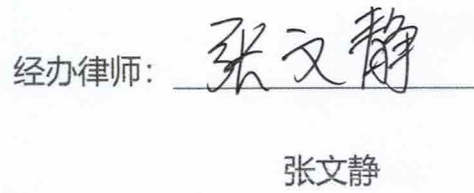 经办律师：张文静
张文静